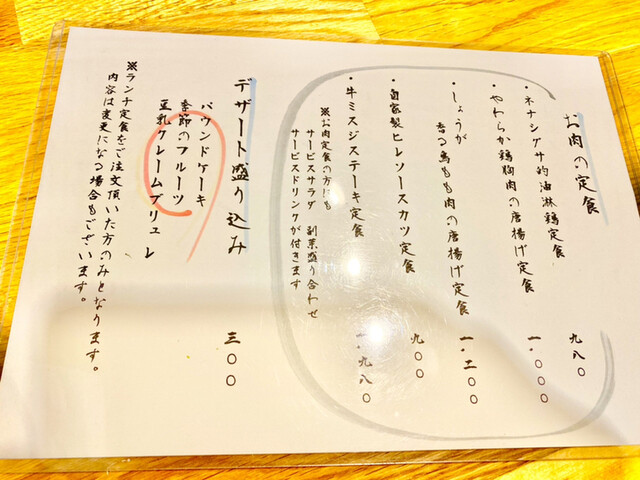 お肉の定食
・ネナシグサ的油淋鶏定食 九八〇
・やわらか鶏胸肉の唐揚げ定食 一.〇〇〇
・しょうが
香る鳥もも肉の唐揚げ定食 一.二〇〇
・自家製ヒレソースカツ定食 九〇〇
・牛ミスジステーキ定食 一.九八〇
※お肉定食の方にも
サービスサラダ 副菜盛り合わせ
サービスドリンクが付きます
デザート盛り込み 三〇〇
パウンドケーキ
季節のフルーツ
豆乳クレームブリュレ
※ランチ定食をご注文頂いた方のみとなります。
内容は変更になる場合もございます。